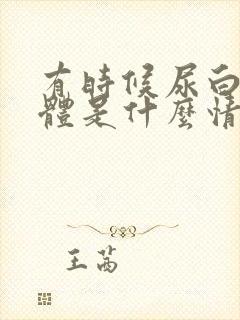 有時候尿白
體是什麼情
王茜